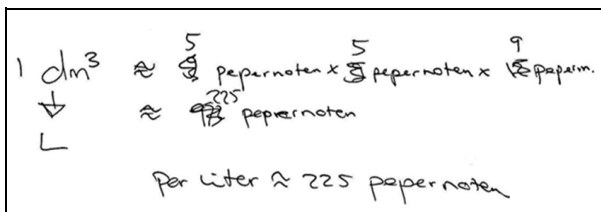 5 5 9
1 dm³ ≈ pepernoten x pepernoten x peperm.
↓ ≈ 225 pepernoten
L
Per liter ≈ 225 pepernoten